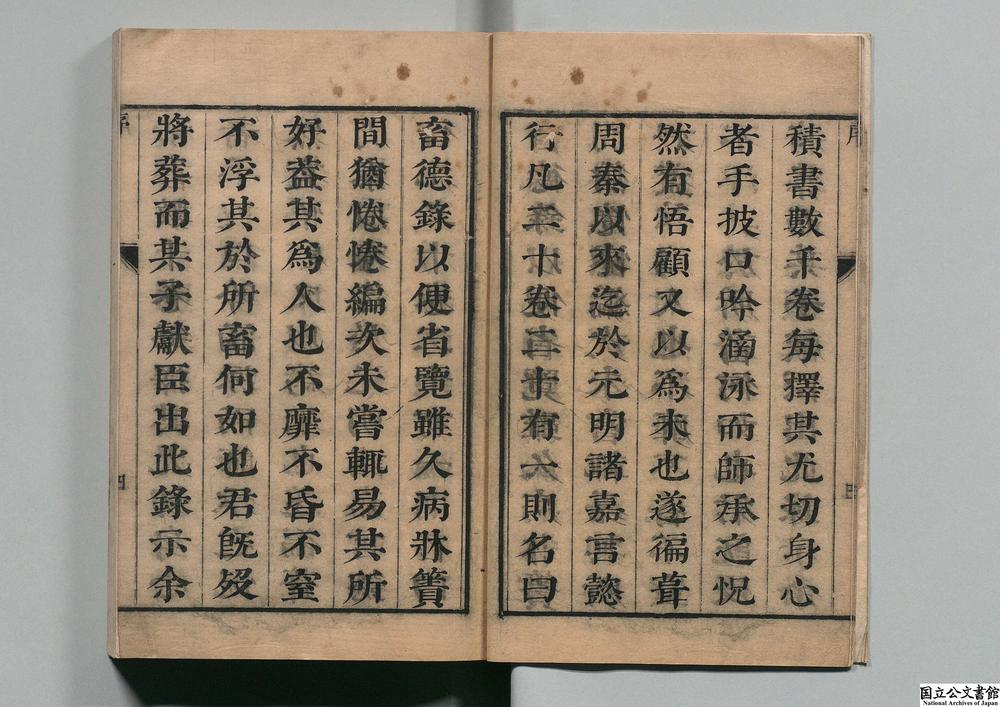 序
積書數千卷每擇其尤切身心
者手披口吟涵泳而師承之怳
然有悟顧又以為未也遂徧葺
周秦以來迄於元明諸嘉言懿
行凡二十卷
有
則名曰
畜德錄以便省覽雖久病牀簀
間猶惓惓編次未嘗輒易其所
好葢其爲人也不靡不昏不窒
不浮其於所畜何如也君旣歿
將葬而某子獻臣出此錄示余
四
国立公文書館
National Archives of Japan